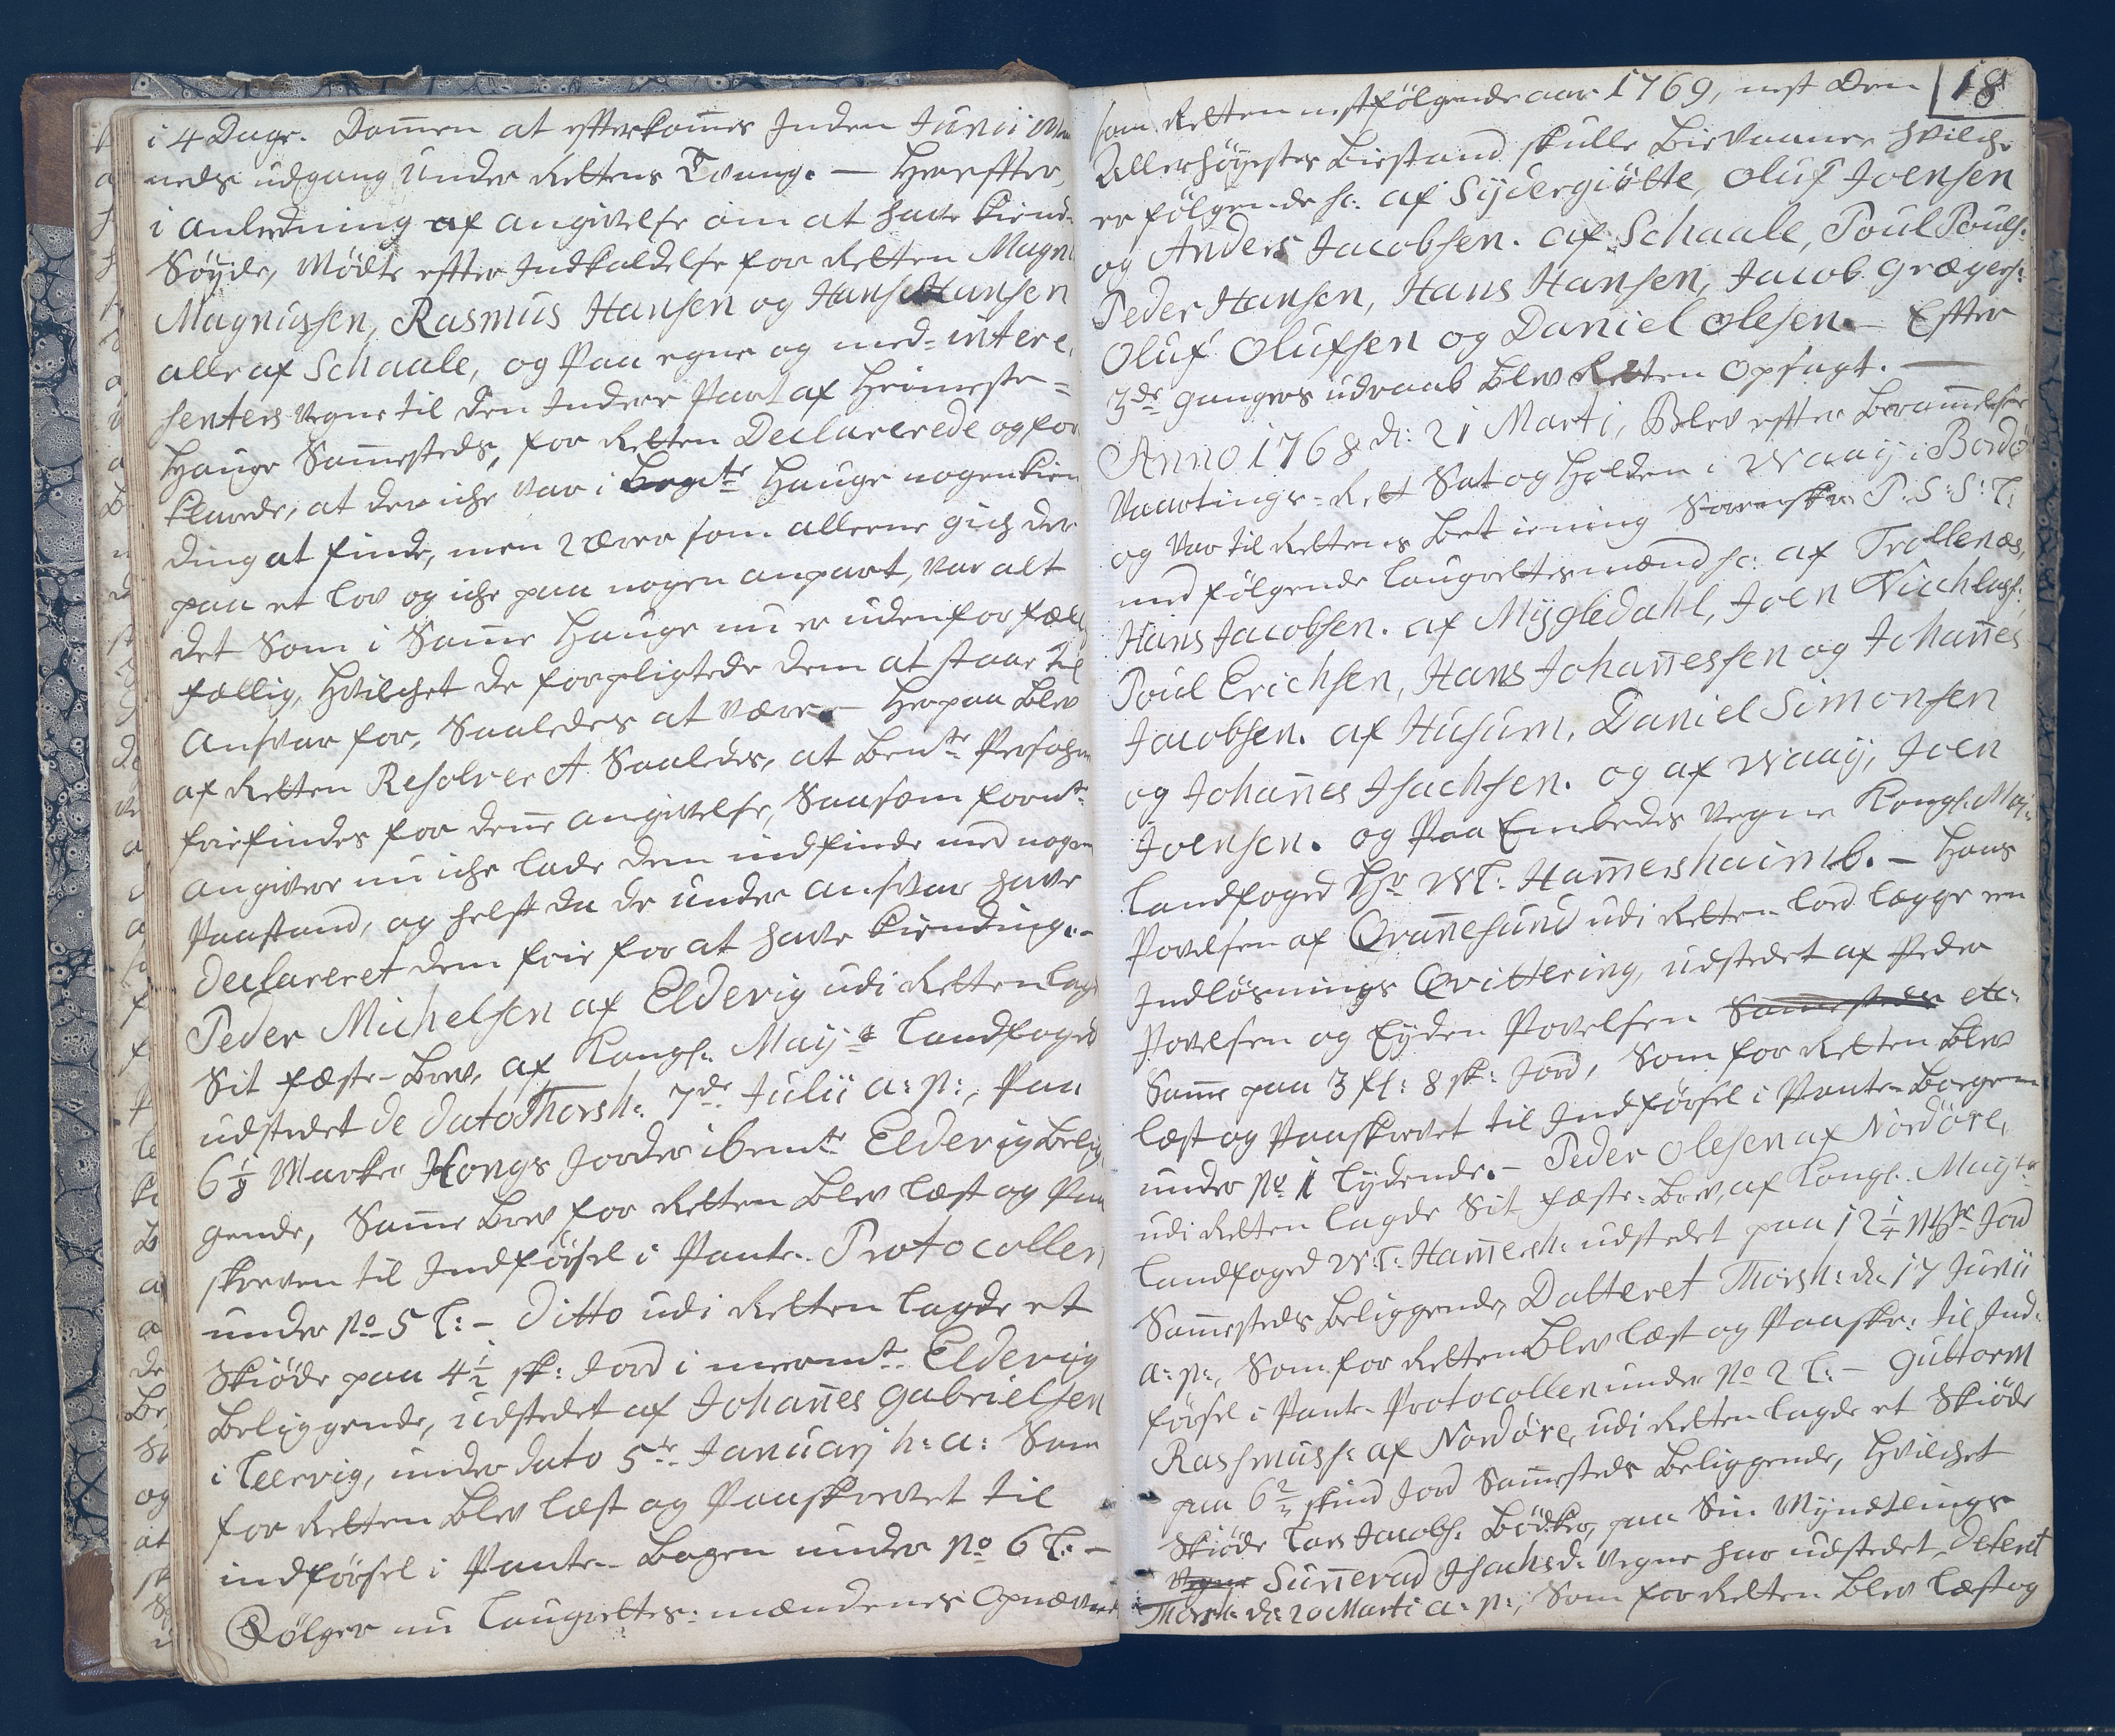 i 4 Dage. Domen at efterkomes Inden Junii Maa
neds udgang under Rettens Tvang. — Herefter,
i anledning af angivelse om at have kiend-
Søyde, Mødte efter Indkaldelse for Retten Magn
Magnussen, Rasmus Hansen og Hanse Hansen
alle af Schaale, og Paa egne og med-intere
senters Vegne til den Indere Part af Heimeste=
Hauge Samesteds, for Retten Declarerede og for
klarede, at der iche var i bogte Hauge nogen kien
ding at finde, men 2 ærer som alleene gich der
paa et lov og iche paa nogen anpart, var alt
det Som i Same Hauge nu er uden for fæll
fællig, Hvilchet de forpligtede dem at staae til
Ansvar for, Saaledes at være. — Herpaa blev
af Retten Resolveret Saaledes, at bente Persohn
friefindes for dene angivelse, Saasom fornt
angivere nu iche lade dem indfinde med nogen
Paastand, og helst da de under ansvar have
declareret dem frie for at have kiending. -
Peder Michelsen af Elderig udi Retten lag
Sit fæste-brev, af Kongl. May.ts Landfoged
udstedet de dato Thorsh: 7de Julii a: p:, Paa
6 1/8 Marker Kongs Jorder i bemte Elderig belig
gende, Same brev for Retten blev læst og Paa
skreven til Indførsel i Pante- Protocollen
under No 5 l: - Ditto udi Retten lagde et
Skiøde paa 4 1/2 sk: Jord i meermt Elderig
beliggende, udstedet af Johanes Gabrielsen
i Leervig, under dato 5te Januarj h: a: Som
for Retten blev læst og Paaskrevet til
indførsel i Pante- bogen under No 6 l: -
Følger nu Laugrettes: mændenes Opnævnel
18
som Retten nestfølgende aar 1769, nest Den
Allerhøyestes biestand skulle bievaane hvilche
er følgende sc: af Sydergiøtte, Oluf Joensen
og Anders Jacobsen. af Schaale, Poul Pouls:
Peder Hansen, Hans Hansen, Jacob Grægers:
Oluf Olufsen og Daniel Olesen. — Efter
3de ganges udraab blev Retten opsagt. —
Anno 1768 d: 21 Marti, Blev efter beramelse
Vaartings-Rett Sat og holden i Waaij i Bordø
og Var til Rettens betiening Sorenskr: P: S: S: L:
med følgende Laugrettesmænd sc: af Trollenæs,
Hans Jacobsen. af Mygledahl, Joen Nichlass:
Poul Erichsen, Hans Johanessen og Johanes
Jacobsen. af Husum, Daniel Simonsen
og Johanes Isachsen. og af Waaij, Joen
Joensen. og Paa Embeds Vegne Kongl. May:
Landfoged Hr W: L: Hamershaimb. — Hans
Povelsen af Qvanesund udi Retten lod lægge en
Indløsnings Qvittering, udstedet af Peder
Povelsen og Eyden Povelsen Samesteds etc:
Same paa 3 fl: 8 sk: Jord, Som for Retten blev
læst og Paaskrevet til Indførsel i Pante-bogen
under No 1 lydende. - Peder Olesen af Nordøre,
udi Retten lagde Sit fæste-brev, af Kongl. Mayts
Landfoged W: L: Hamersh: udstedet paa 12 1/4 Mkr Jord
Samesteds beliggende, Datteret Thorsh: d: 17 Junii
a: p:, Som for Retten blev læst og Paaskr: til Ind-
førsel i Pante-Protocollen under No 2 l: - Guttorm
Rassmuss: af Nordøre, udi Retten lagde et Skiøde
paa 6 2/3 skind Jord Samesteds beliggende, Hvilchet
Skiøde Lars Jacobs: bødker, paa Sin Myndtlings
Vegne Sunevad Isachsd: Vegne har udstedet, Datert
Thorsh: d: 20 Marti a: p:, Som for Retten blev læst og